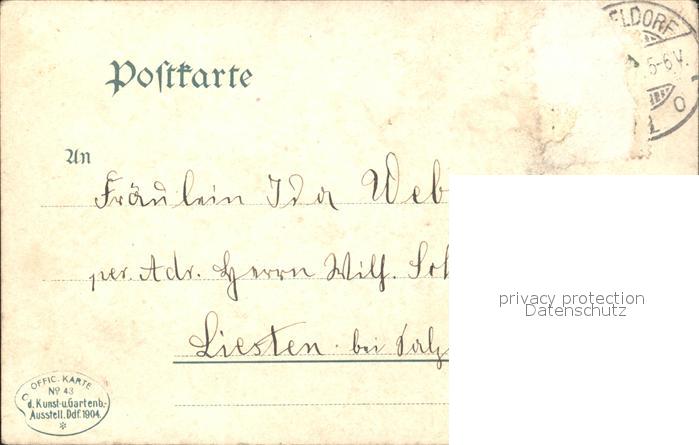 ELDORF
5-6V.
Postkarte
An
Fräulein Ida Web
per. Adr. Herrn Wilh. Sch
Liesten bei Salz
privacy protection
Datenschutz
OFFIC. KARTE
No 43
d. Kunst-u.Gartenb.-
Ausstell. Ddf. 1904.